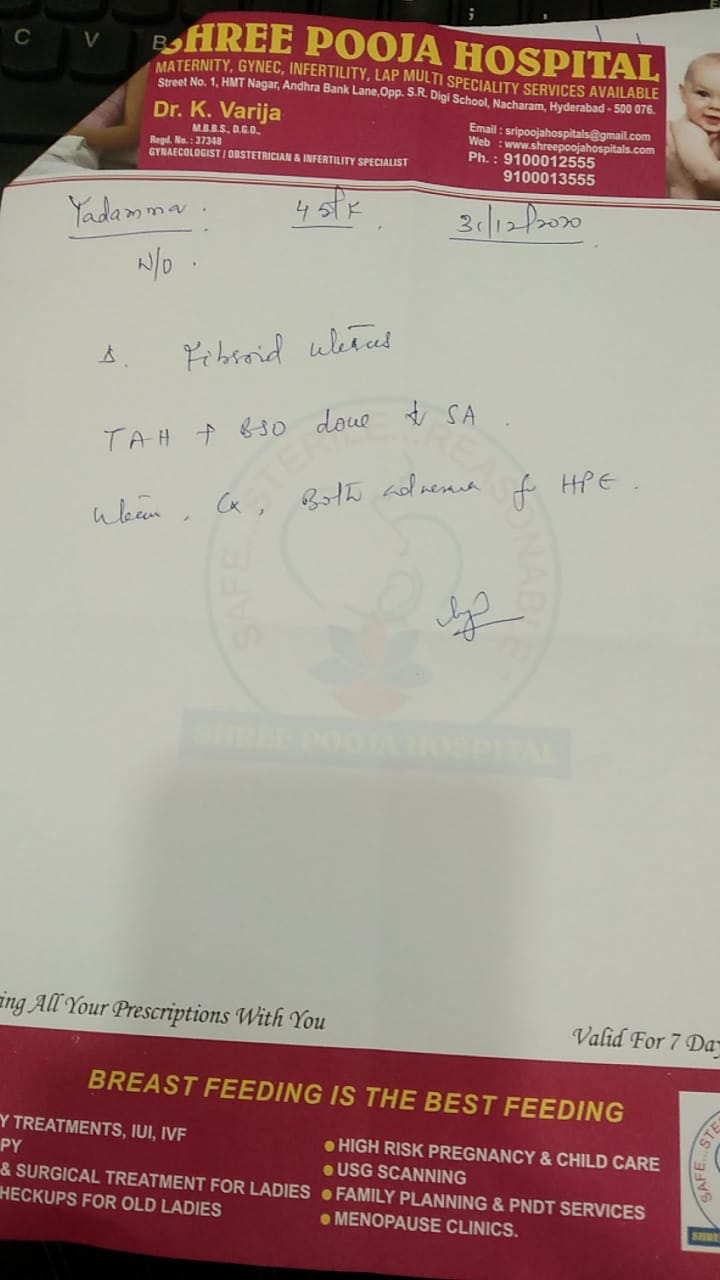 C V B
SHREE POOJA HOSPITAL
MATERNITY, GYNEC, INFERTILITY, LAP MULTI SPECIALITY SERVICES AVAILABLE
Street No. 1, HMT Nagar, Andhra Bank Lane,Opp. S.R. Digi School, Nacharam, Hyderabad - 500 076.
Dr. K. Varija
M.B.B.S., D.G.O.,
Regd. No. : 37348
GYNAECOLOGIST / OBSTETRICIAN & INFERTILITY SPECIALIST
Email : sripoojahospitals@gmail.com
Web : www.shreepoojahospitals.com
Ph. : 9100012555
9100013555
Yadamma. 45/F. 31/12/2020
W/O.
Fibroid uterus
TAH + BSO done SA.
Cx, Both adnexa for HPE.
SAFE....STERILE....REASONABLE
SHREE POOJA HOSPITAL
ing All Your Prescriptions With You
Valid For 7 Day
BREAST FEEDING IS THE BEST FEEDING
Y TREATMENTS, IUI, IVF
PY
& SURGICAL TREATMENT FOR LADIES
HECKUPS FOR OLD LADIES
HIGH RISK PREGNANCY & CHILD CARE
USG SCANNING
FAMILY PLANNING & PNDT SERVICES
MENOPAUSE CLINICS.
SAFE....STE
SHRE